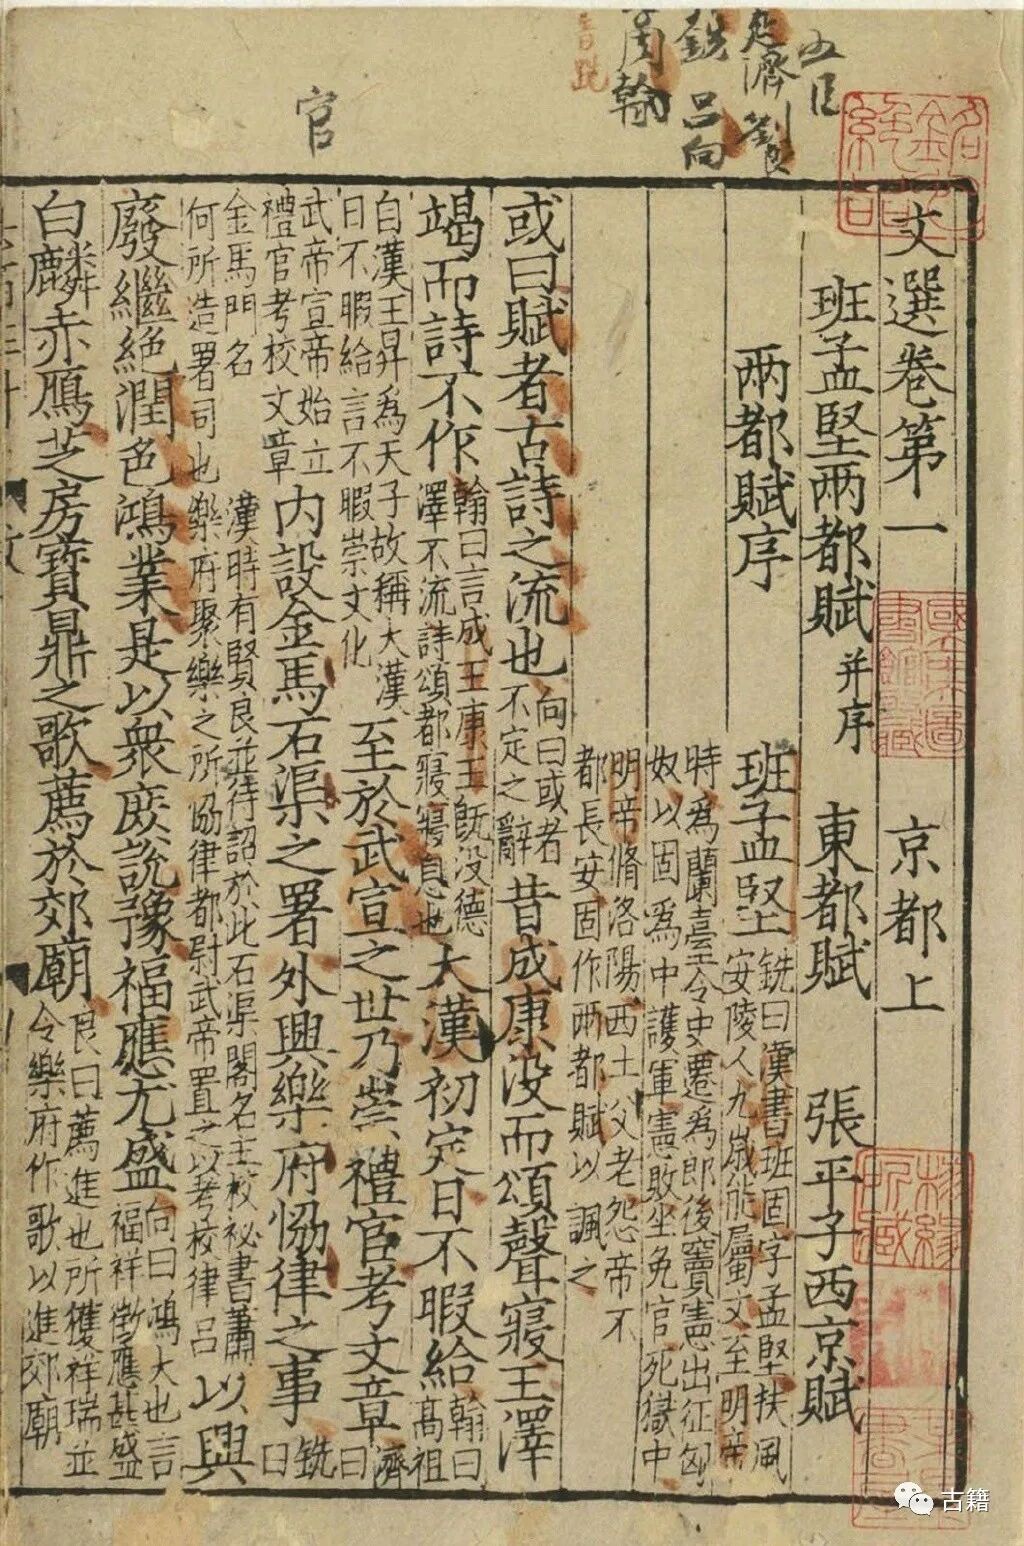 五臣
延濟 劉良
銑 呂向
周翰
官
文選卷第一 京都上
班孟堅兩都賦并序 東都賦 張平子西京賦
兩都賦序 班孟堅
銑曰漢書班固字孟堅扶風
安陵人九歲能屬文至明帝
時為蘭臺令史遷為郎後竇憲出征匈
奴以固為中護軍憲敗坐免官死獄中
明帝脩洛陽西土父老怨帝不
都長安固作兩都賦以諷之
或曰賦者古詩之流也向曰或者不定之辭昔成康没而頌聲寢王澤
竭而詩不作翰曰言成王康王既没德澤不流詩頌都寢寢息也大漢初定日不暇給翰曰高祖
自漢王昇為天子故稱大漢日不暇給言不暇崇文化至於武宣之世乃崇禮官考文章濟曰
武帝宣帝始立禮官考校文章内設金馬石渠之署外興樂府恊律之事銑曰
金馬門名漢時有賢良並待詔於此石渠閣名主校祕書蕭何所造署司也樂府聚樂之所協律都尉武帝置之以考校律吕以興
廢繼絶潤色鴻業是以衆庶說豫福應尤盛向曰鴻大也言福祥徵應甚盛
白麟赤鴈芝房寳鼎之歌薦於郊廟良曰薦進也所獲祥瑞並令樂府作歌以進郊廟
古籍